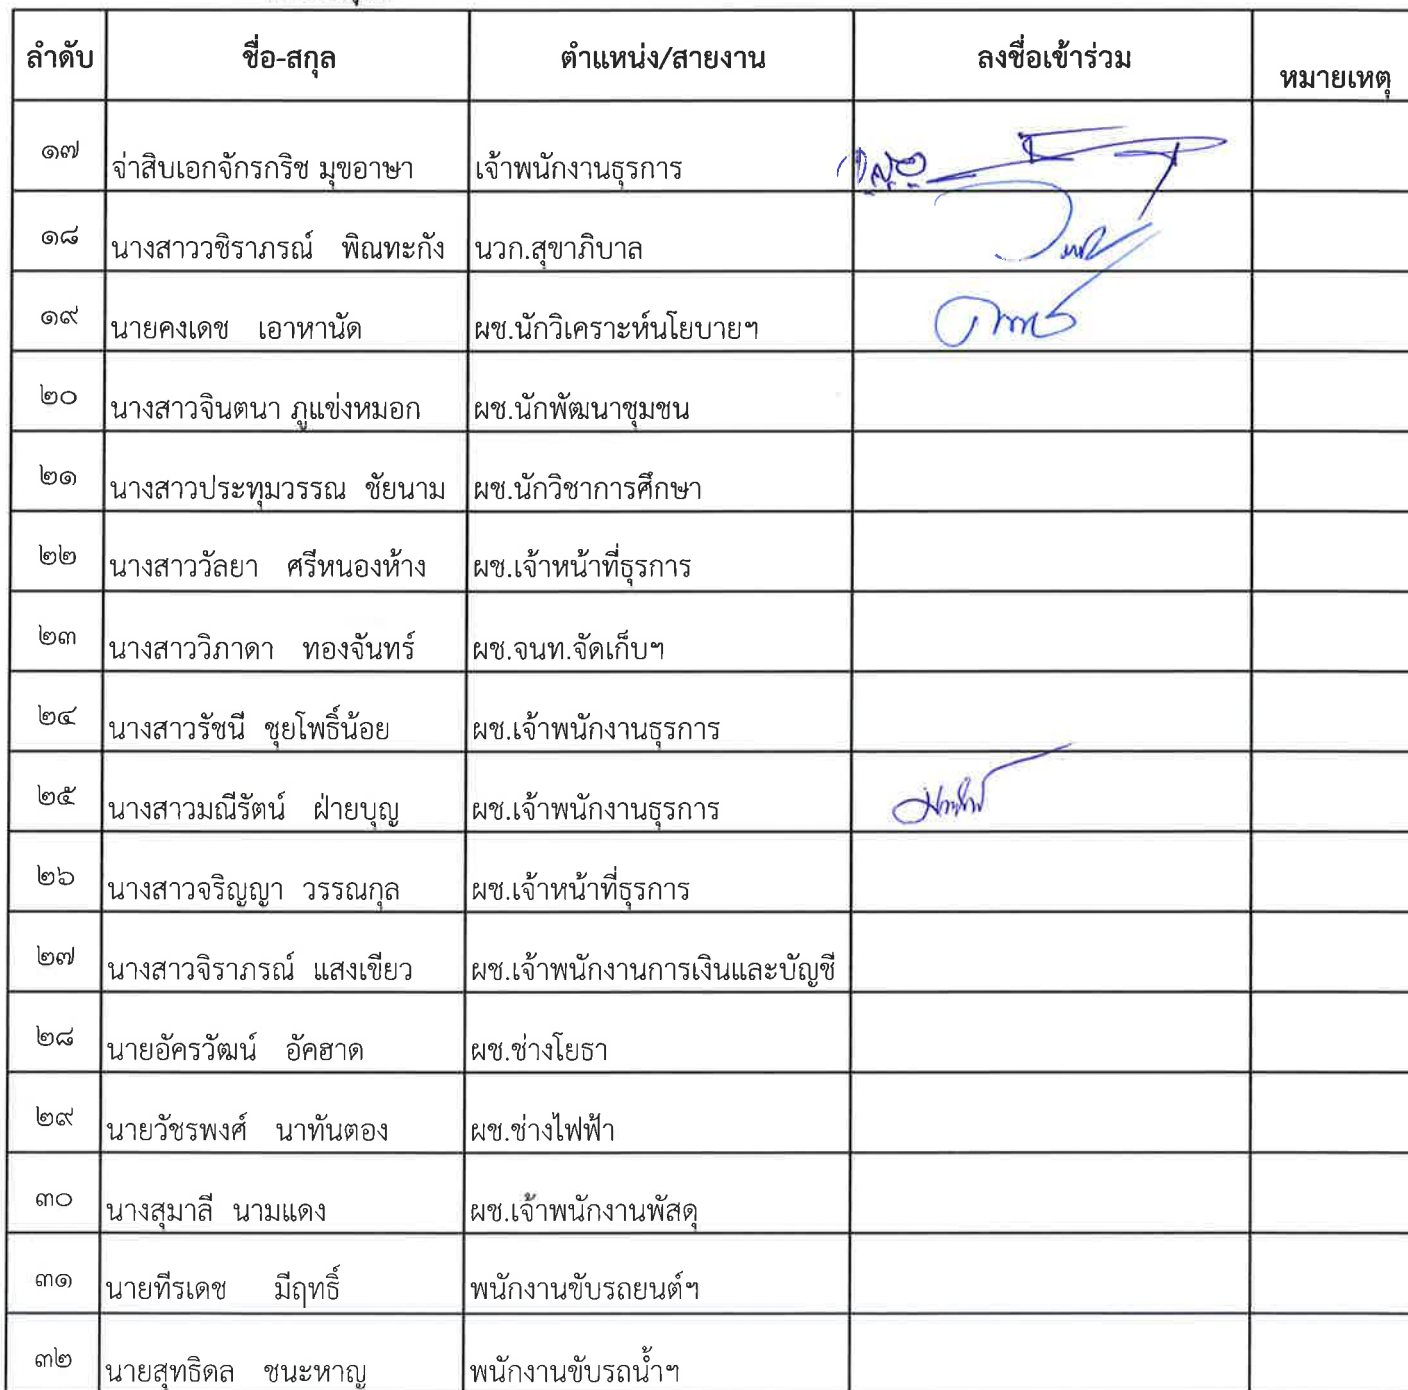 ลำดับ ชื่อ-สกุล ตำแหน่ง/สายงาน ลงชื่อเข้าร่วม หมายเหตุ
๑๗ จ่าสิบเอกจักรกริช มุขอาษา เจ้าพนักงานธุรการ
๑๘ นางสาววชิราภรณ์ พิณทะกัง นวก.สุขาภิบาล
๑๙ นายคงเดช เอาหานัด ผช.นักวิเคราะห์นโยบายฯ
๒๐ นางสาวจินตนา ภูแข่งหมอก ผช.นักพัฒนาชุมชน
๒๑ นางสาวประทุมวรรณ ชัยนาม ผช.นักวิชาการศึกษา
๒๒ นางสาววัลยา ศรีหนองห้าง ผช.เจ้าหน้าที่ธุรการ
๒๓ นางสาววิภาดา ทองจันทร์ ผช.จนท.จัดเก็บฯ
๒๔ นางสาวรัชนี ชุยโพธิ์น้อย ผช.เจ้าพนักงานธุรการ
๒๕ นางสาวมณีรัตน์ ฝ่ายบุญ ผช.เจ้าพนักงานธุรการ
๒๖ นางสาวจริญญา วรรณกุล ผช.เจ้าหน้าที่ธุรการ
๒๗ นางสาวจิราภรณ์ แสงเขียว ผช.เจ้าพนักงานการเงินและบัญชี
๒๘ นายอัครวัฒน์ อัคฮาด ผช.ช่างโยธา
๒๙ นายวัชรพงศ์ นาทันตอง ผช.ช่างไฟฟ้า
๓๐ นางสุมาลี นามแดง ผช.เจ้าพนักงานพัสดุ
๓๑ นายทีรเดช มีฤทธิ์ พนักงานขับรถยนต์ฯ
๓๒ นายสุทธิดล ชนะหาญ พนักงานขับรถน้ำฯ